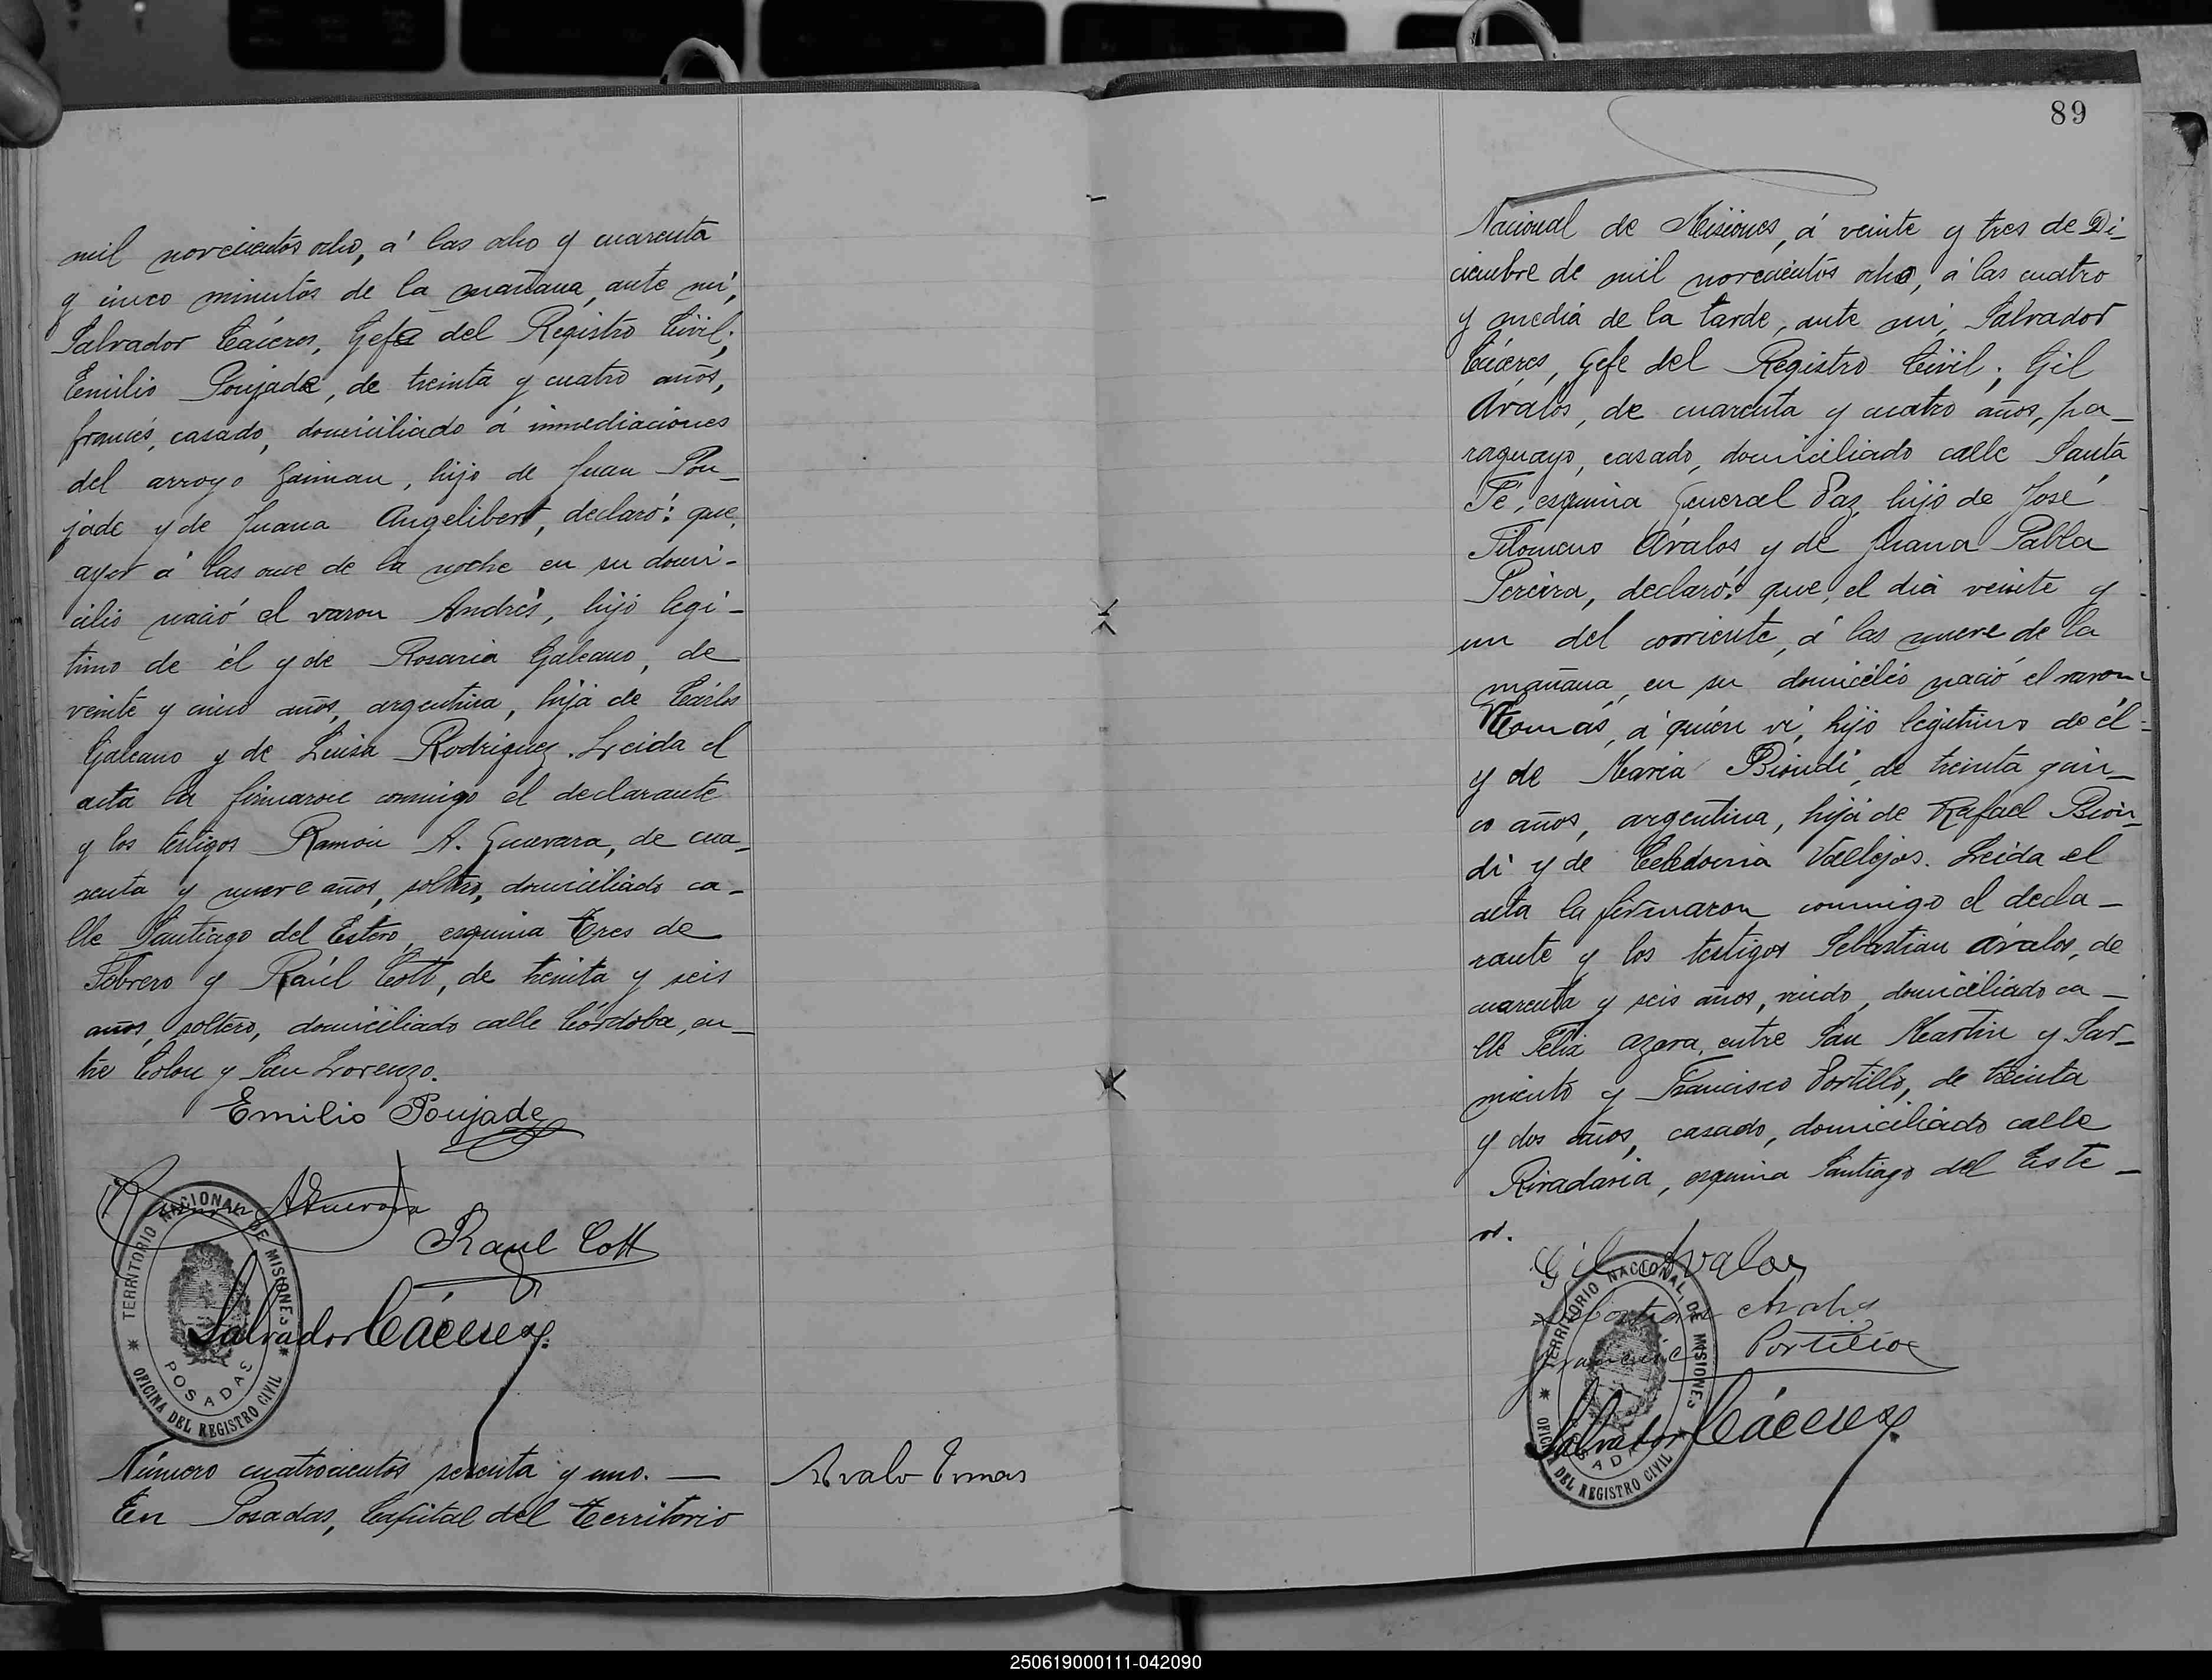 mil novecientos ocho, á las ocho y cuarenta
y cinco minutos de la mañana, ante mi,
Salvador Cáceres, Gefe del Registro Civil;
Emilio Poujade, de treinta y cuatro años,
francés, casado, domiciliado á inmediaciones
del arroyo Zaiman, hijo de Juan Pou-
jade y de Juana Angelibert, declaró: que,
ayer á las once de la noche en su domi-
cilio nació el varon Andrés, hijo legi-
timo de él y de Rosaria Galeano, de
veinte y cinco años, argentina, hija de Cárlos
Galeano y de Luisa Rodriguez. Leida el
acta la firmaron conmigo el declarante
y los testigos Ramón A. Guevara, de cua-
renta y nueve años, soltero, domiciliado ca-
lle Santiago del Estero, esquina Tres de
Febrero y Raúl Cott, de treinta y seis
años, soltero, domiciliado calle Córdoba, en-
tre Colon y San Lorenzo.
Emilio Poujade
Ramon A Guevara
Raul Cott
Salvador Cáceres
TERRITORIO NACIONAL DE MISIONES
POSADAS
OFICINA DEL REGISTRO CIVIL
Número cuatrocientos sesenta y uno. —
En Posadas, Capital del Territorio
Avalo Tomas
89
Nacional de Misiones, á veinte y tres de Di-
ciembre de mil novecientos ocho, á las cuatro
y media de la tarde, ante mi, Salvador
Cáceres, Gefe del Registro Civil; Gil
Ávalos, de cuarenta y cuatro años, pa-
raguayo, casado, domiciliado calle Santa
Fé, esquina General Paz, hijo de José
Filomeno Ávalos y de Juana Pabla
Pereira, declaró: que, el dia veinte y
un del corriente, á las nueve de la
mañana, en su domicilio nació el varon
Tomás, á quién vi, hijo legitimo de él
y de Maria Biondi, de treinta y cin-
co años, argentina, hija de Rafael Bion-
di y de Celedonia Vallejos. Leida el
acta la firmaron conmigo el decla-
rante y los testigos Sebastian Ávalos, de
cuarenta y seis años, viudo, domiciliado ca-
lle Felix Azara, entre San Martin y Sar-
miento y Francisco Portillo, de treinta
y dos años, casado, domiciliado calle
Rivadavia, esquina Santiago del Este-
ro.
Gil Avalos
Sebastian Avalos
Francisco Portillo
Salvador Cáceres
TERRITORIO NACIONAL DE MISIONES
POSADAS
OFICINA DEL REGISTRO CIVIL
250619000111-042090